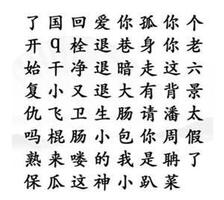 了国回爱你孤你个
开q栓退巷身你老
始干净退暗走这六
复小又退大有背景
仇飞卫生肠请潘太
吗棍肠小包你周假
熟来喽的我是聃了
保瓜这神小趴菜